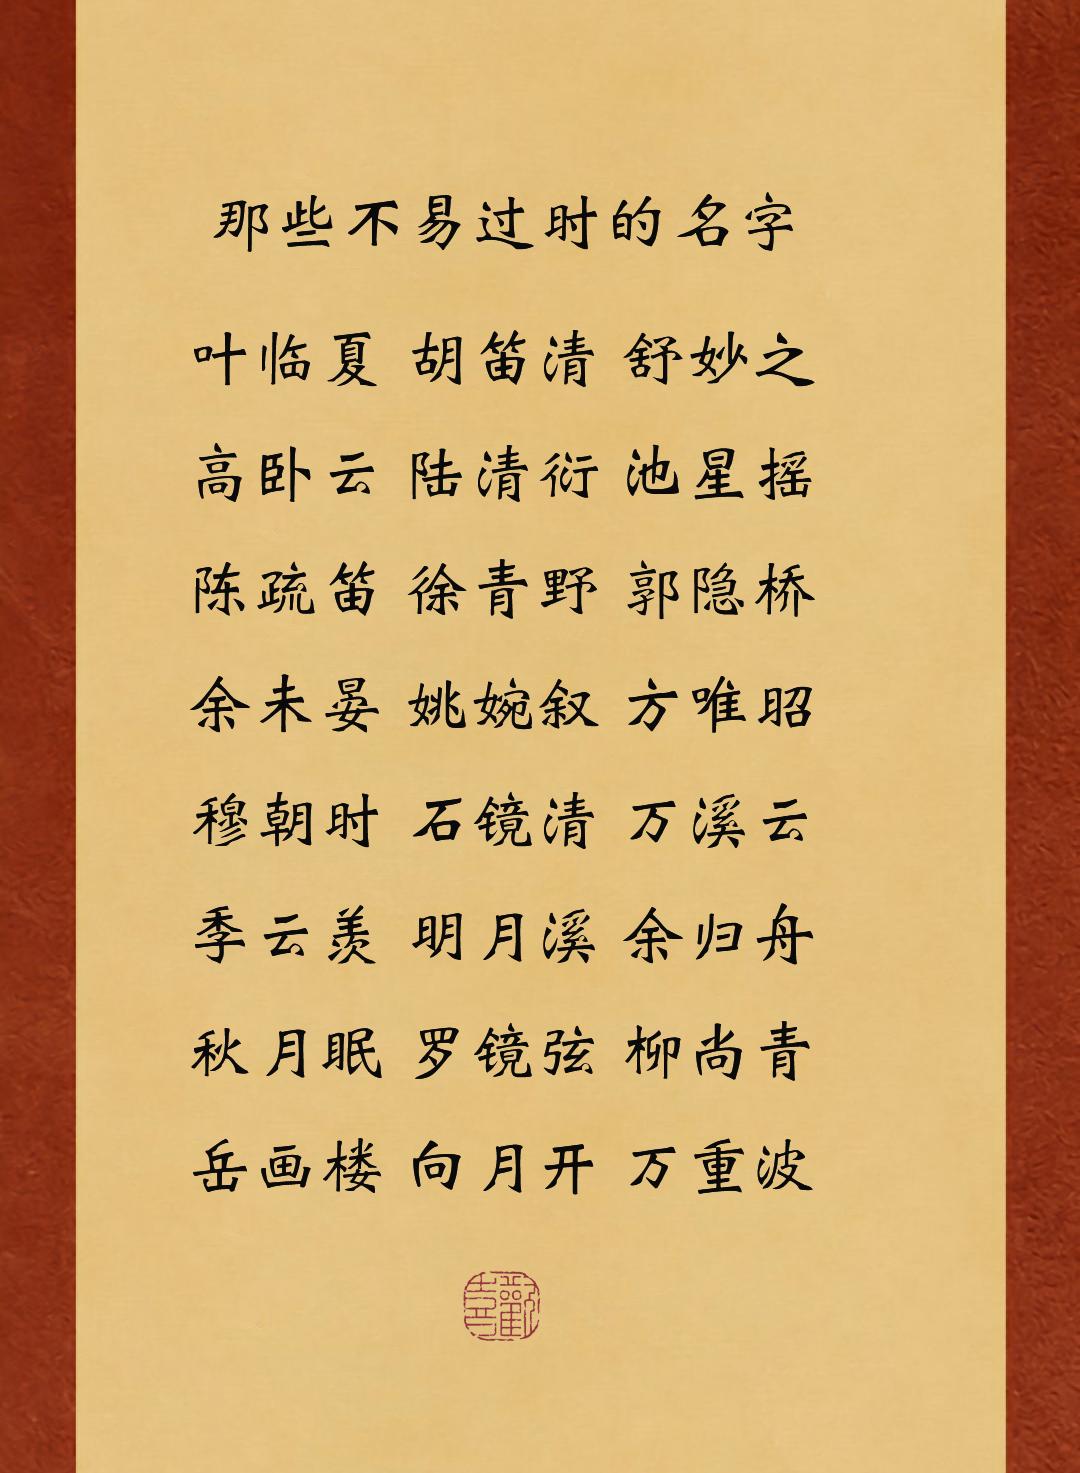 那些不易过时的名字
叶临夏 胡笛清 舒妙之
高卧云 陆清衍 池星摇
陈疏笛 徐青野 郭隐桥
余未晏 姚婉叙 方唯昭
穆朝时 石镜清 万溪云
季云羡 明月溪 余归舟
秋月眠 罗镜弦 柳尚青
岳画楼 向月开 万重波